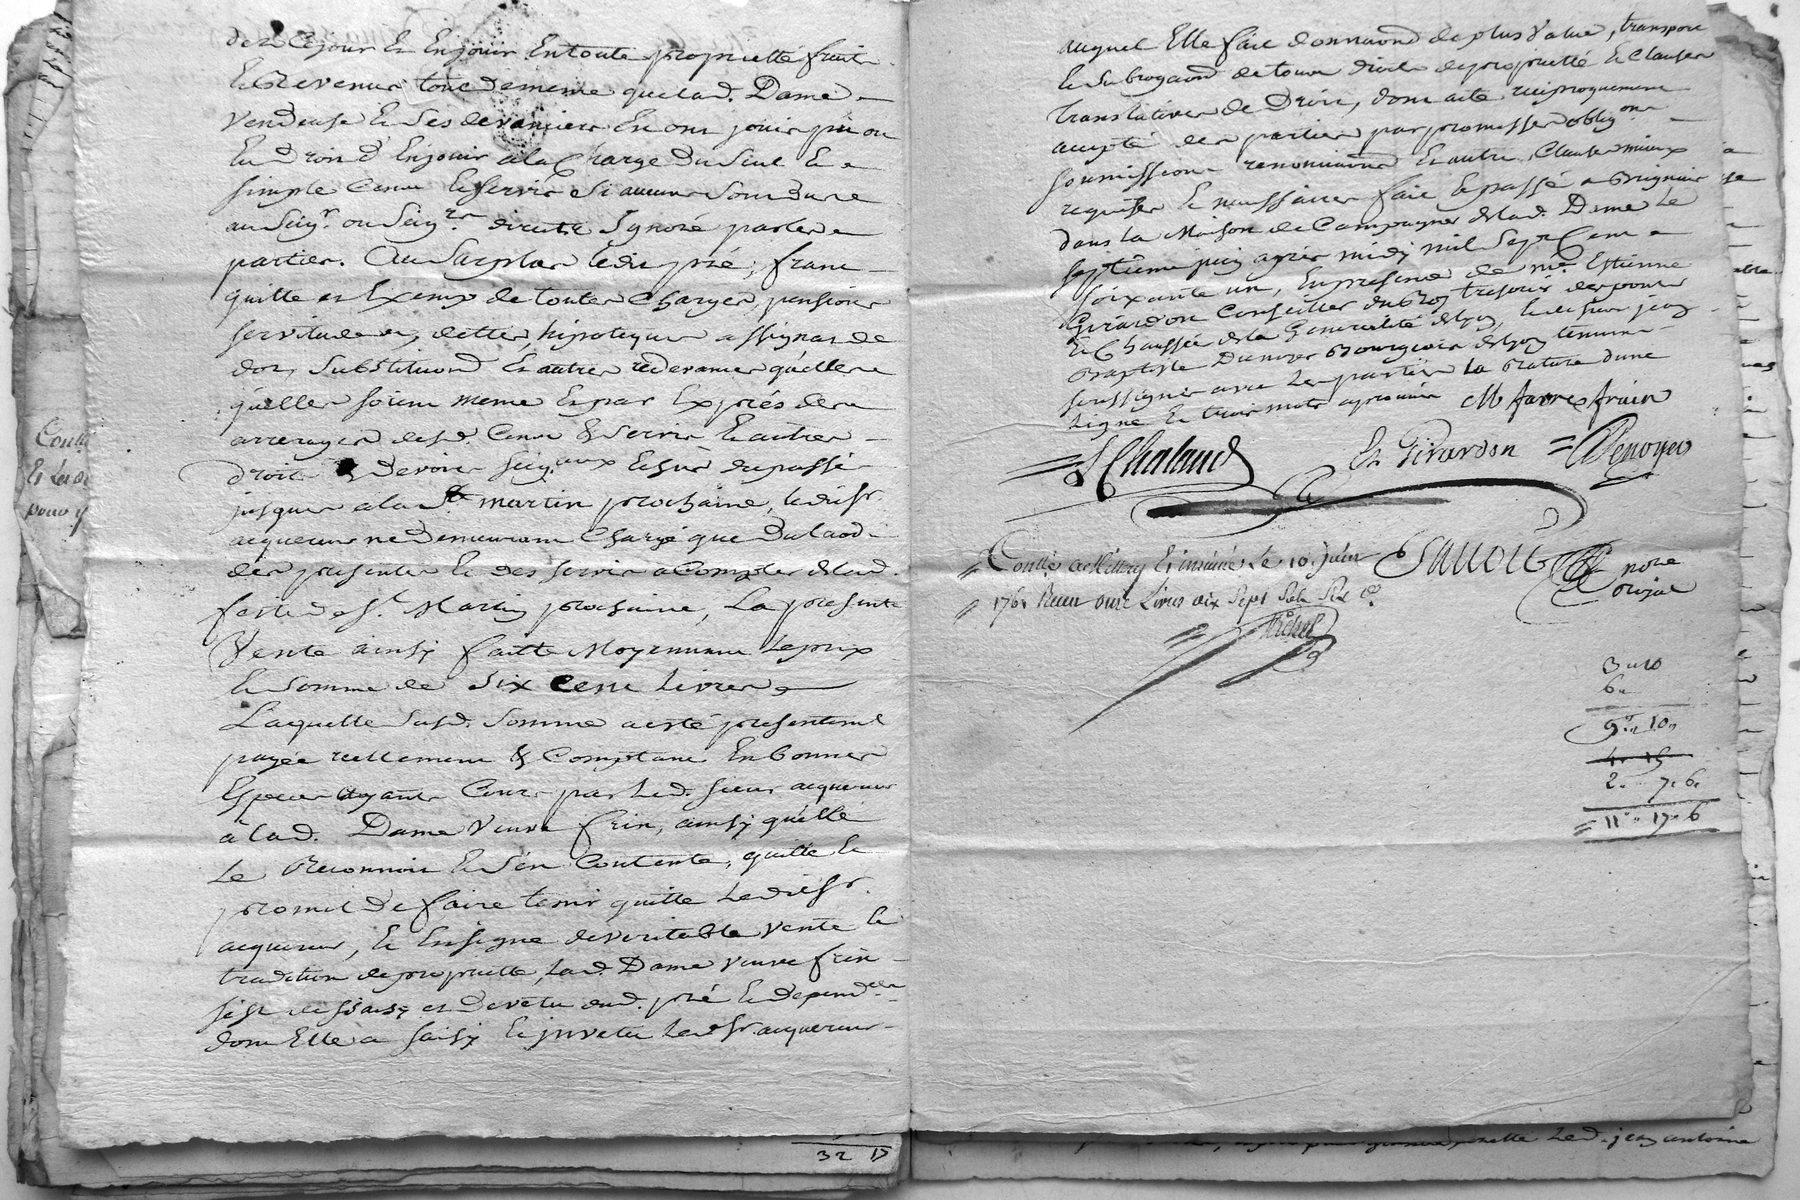 dez Cejour Et Enjouir Entoute proprietté fruits
Et Revenus tout dememe quelad. Dame
Vendeuse Et Ses devanciers En ont jouir pû ou
Eu droit d'Enjouir ala Charge du Seul Et
simple Cens Et servis Si aucuns Sont dus
au Seigr. ou Seigrs. directs Ignoré par les
parties. Au Surplus ledit pré, franc
quitte et Exemp de toutes Charges, pensions
servitudes, dettes, hipoteques assignat de
dot, Substitution Et autres redevances quelles
quelles soient meme Et par Exprés des
arrerages desd. Cens & Servis Et autres
droits & devoirs Seigaux Echus du passé
jusques ala St. martin prochaine, ledit Sr.
acquereur ne Demeurant Chargé que Dulaod
des presentes Et des servis a Compter delad.
feste de St. Martin prochaine, La presente
Vente ainsy faitte Moyennant Le prix
Et Somme de Six Cent Livres
Laquelle susd. Somme a esté presentement
payée reellement & Comptant En bonnes
Especes ayants Cours par Led. sieur acquereur
à lad. Dame Veuve frin, ainsy qu'elle
Le Reconnoit Et s'en Contente, quitte Et
promet de faire tenir quitte Ledit Sr.
acquereur, Et En signe de veritable Vente Et
tradition de proprietté, Lad. Dame Veuve frin
s'est dessaisy et Devetu dud. pré Et dependces
dont Elle a saisy Et jnvetu Led. Sr acquereur
auquel Elle fait donnaon de plus Value, transport
Et subrogaon de tous droits de proprietté Et Clauses
translatives de Droit, dont acte reciproquement
accepté des parties par promesses oblig.ons
soumissions renonciaons Et autres Clauses mieux
requises Et necessaires fait Et passé a Brignais
dans la Maison de Campagne delad. Dame Le
septième juin après midy mil Sept Cent
soixante un, En presence de mr. Estienne
Girardon Conseiller du Roy tresorier des ponts
Et Chaussées de la Generalité de Lyon, Et de sieur jean
Baptiste Denoyer Bourgeois de Lyon temoins
soussignés avec Les parties La Rature d'une
Ligne Et trois mots approuvés M favre frain
Chaland Et Girardon Denoyer
Contlé a Millery Et insinué le 10. juin
1761 Receu onze Livres dix Sept Sols Six d.
Michel
nore
Roijal
3 " 10
6 "
9 " 10 "
4 " 15
2 " 7 " 6
11 " 17 " 6
32 15